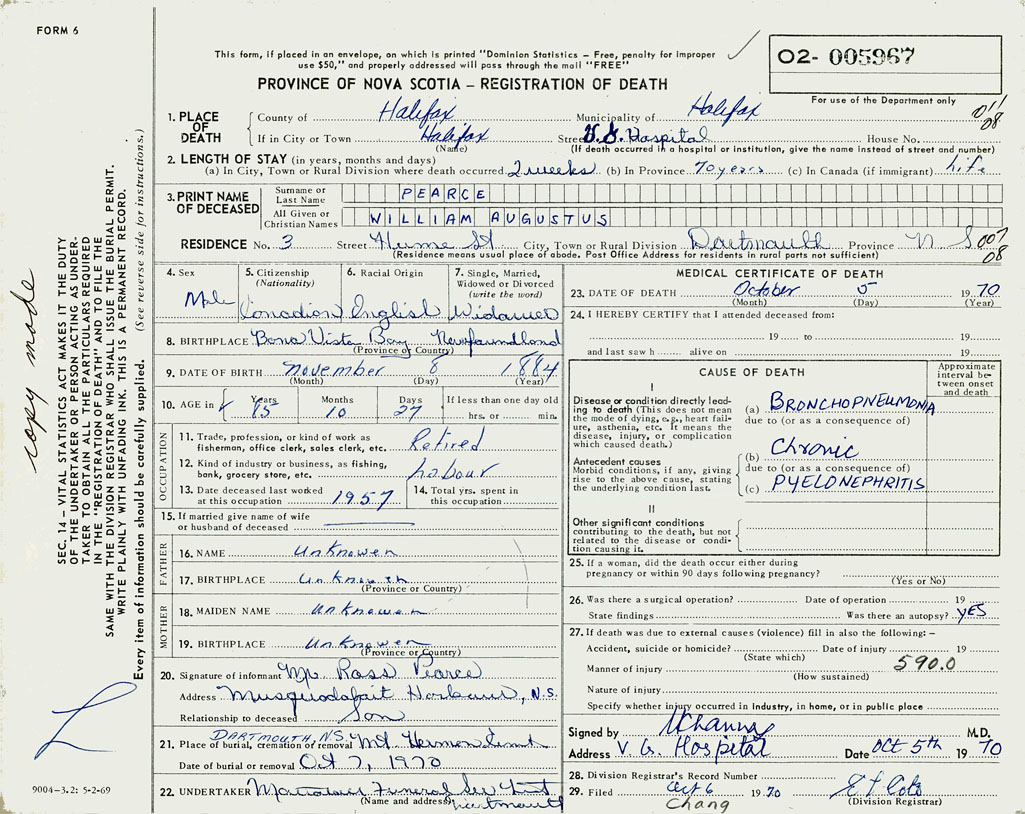 FORM 6
This form, if placed in an envelope, on which is printed "Dominion Statistics – Free, penalty for improper
use $50," and properly addressed will pass through the mail "FREE"
02- 005967
For use of the Department only
PROVINCE OF NOVA SCOTIA – REGISTRATION OF DEATH
011/08
1. PLACE OF DEATH
County of Halifax Municipality of Halifax
If in City or Town Halifax Street V.G. Hospital House No.
(Name) (If death occurred in a hospital or institution, give the name instead of street and number)
2. LENGTH OF STAY (in years, months and days)
(a) In City, Town or Rural Division where death occurred 2 weeks (b) In Province 70 years (c) In Canada (if immigrant) Life
3. PRINT NAME OF DECEASED
Surname or Last Name PEARCE
All Given or Christian Names WILLIAM AUGUSTUS
RESIDENCE No. 3 Street Hume St City, Town or Rural Division Dartmouth Province N S 007/08
(Residence means usual place of abode. Post Office Address for residents in rural parts not sufficient)
4. Sex Male
5. Citizenship (Nationality) Canadian
6. Racial Origin English
7. Single, Married, Widowed or Divorced (write the word) Widower
8. BIRTHPLACE Bona Vista Bay Newfoundland
(Province or Country)
9. DATE OF BIRTH November 8 1884
(Month) (Day) (Year)
10. AGE in Years 85 Months 10 Days 27 If less than one day hrs. or min.
OCCUPATION
11. Trade, profession, or kind of work as fisherman, office clerk, sales clerk, etc. Retired
12. Kind of industry or business, as fishing, bank, grocery store, etc. Labour
13. Date deceased last worked at this occupation 1957
14. Total yrs. spent in this occupation
15. If married give name of wife or husband of deceased
FATHER
16. NAME Unknowen
17. BIRTHPLACE Unknowen
(Province or Country)
MOTHER
18. MAIDEN NAME Unknowen
19. BIRTHPLACE Unknowen
(Province or Country)
20. Signature of informant Mr Ross Pearce
Address Musquodoboit Harbour, N.S.
Relationship to deceased Son
21. Place of burial, cremation or removal DARTMOUTH, N.S. Mt Hermon
Date of burial or removal Oct 7, 1970
22. UNDERTAKER Funeral Dartmouth
(Name and address)
MEDICAL CERTIFICATE OF DEATH
23. DATE OF DEATH October 5 1970
(Month) (Day) (Year)
24. I HEREBY CERTIFY that I attended deceased from:
19 to 19
and last saw h alive on 19
CAUSE OF DEATH
Approximate interval between onset and death
I
Disease or condition directly leading to death (This does not mean the mode of dying, e.g., heart failure, asthenia, etc. It means the disease, injury, or complication which caused death.)
(a) BRONCHOPNEUMONIA
due to (or as a consequence of)
Antecedent causes
Morbid conditions, if any, giving rise to the above cause, stating the underlying condition last.
(b) Chronic
due to (or as a consequence of)
(c) PYELONEPHRITIS
II
Other significant conditions contributing to the death, but not related to the disease or condition causing it.
25. If a woman, did the death occur either during pregnancy or within 90 days following pregnancy?
(Yes or No)
26. Was there a surgical operation? Date of operation 19
State findings Was there an autopsy? YES
27. If death was due to external causes (violence) fill in also the following: –
Accident, suicide or homicide? Date of injury 19
(State which)
Manner of injury 590.0
(How sustained)
Nature of injury
Specify whether injury occurred in industry, in home, or in public place
Signed by M.D.
Address V. G. Hospital Date Oct 5th 1970
28. Division Registrar's Record Number
29. Filed Oct 6 1970
Chang
(Division Registrar)
copy made
SEC. 14 – VITAL STATISTICS ACT MAKES IT THE DUTY
OF THE UNDERTAKER OR PERSON ACTING AS UNDER-
TAKER TO OBTAIN ALL THE PARTICULARS REQUIRED
IN THE "REGISTRATION OF DEATH" AND TO FILE THE
SAME WITH THE DIVISION REGISTRAR WHO SHALL ISSUE THE BURIAL PERMIT.
WRITE PLAINLY WITH UNFADING INK. THIS IS A PERMANENT RECORD.
Every item of information should be carefully supplied. (See reverse side for instructions.)
9004-3.2: 5-2-69